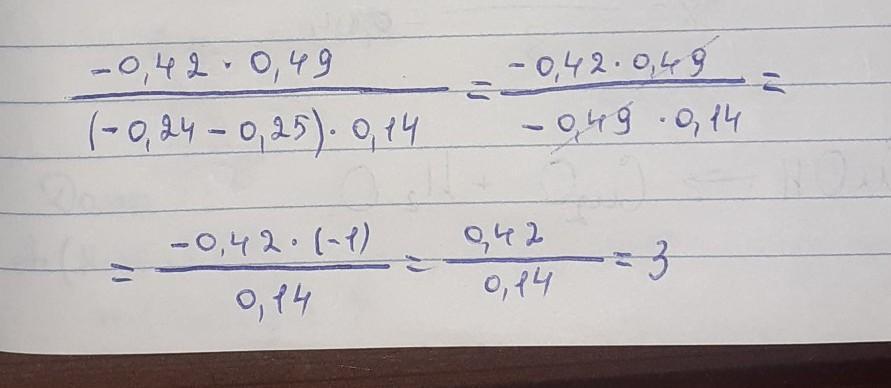 -0,42 · 0,49 / (-0,24 - 0,25) · 0,14 = -0,42 · 0,49 / -0,49 · 0,14 =
= -0,42 · (-1) / 0,14 = 0,42 / 0,14 = 3